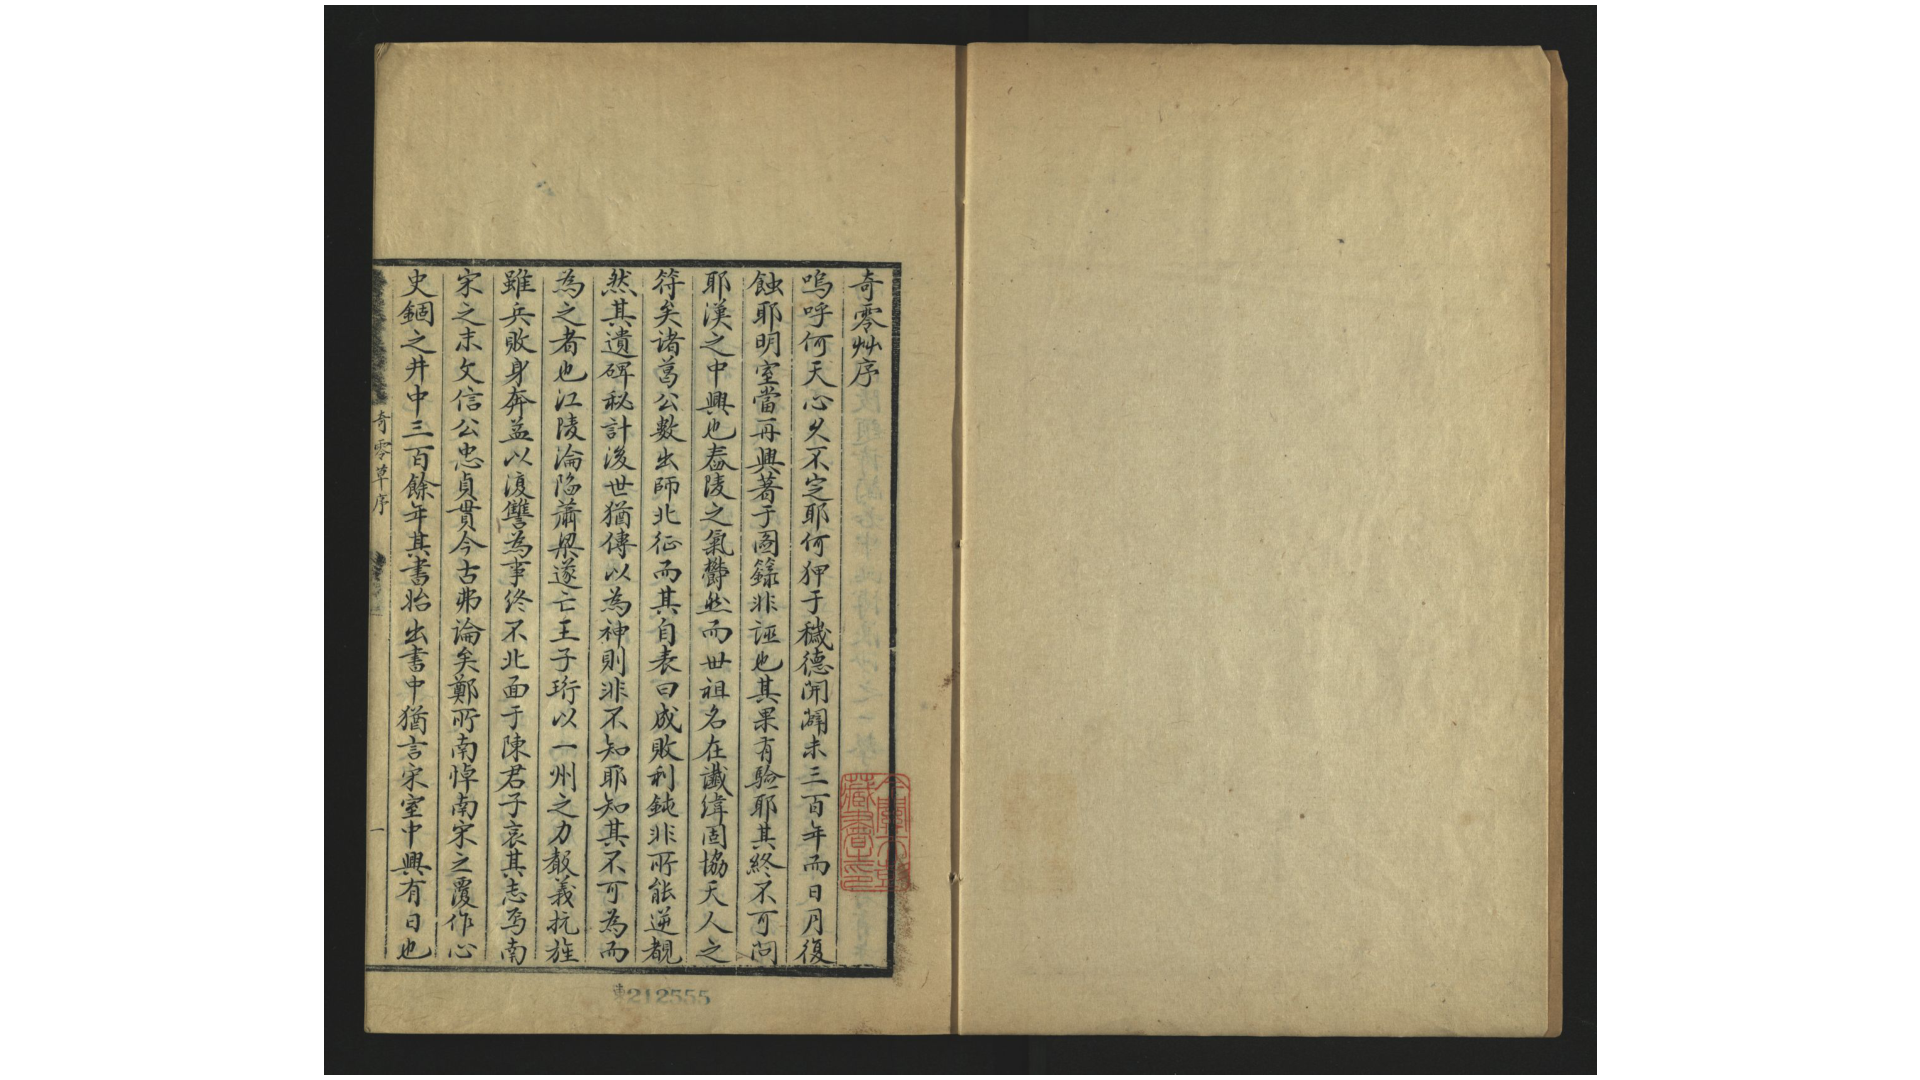 奇零艸序
嗚呼何天心久不定耶何狎于穢德開闢未三百年而日月復
蝕耶明室當再興著于圖籙非誣也其果有驗耶其終不可問
耶漢之中興也舂陵之氣鬱然而世祖名在讖緯固協天人之
符矣諸葛公數出師北征而其自表曰成敗利鈍非所能逆覩
然其遺碑秘計後世猶傳以為神則非不知耶知其不可為而
為之者也江陵淪陷蕭梁遂亡王子珩以一州之力殽義抗旌
雖兵敗身奔益以復讐為事終不北面于陳君子哀其志焉南
宋之末文信公忠貞貫今古弗論矣鄭所南悼南宋之覆作心
史錮之井中三百餘年其書始出書中猶言宋室中興有日也
奇零草序
一
藏書
212555